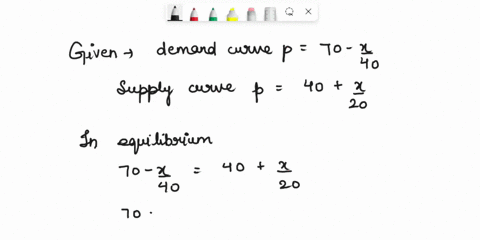 Given → demand curve p = 70 - x/40
Supply curve p = 40 + x/20
In equilibrium
70 - x/40 = 40 + x/20
70 -